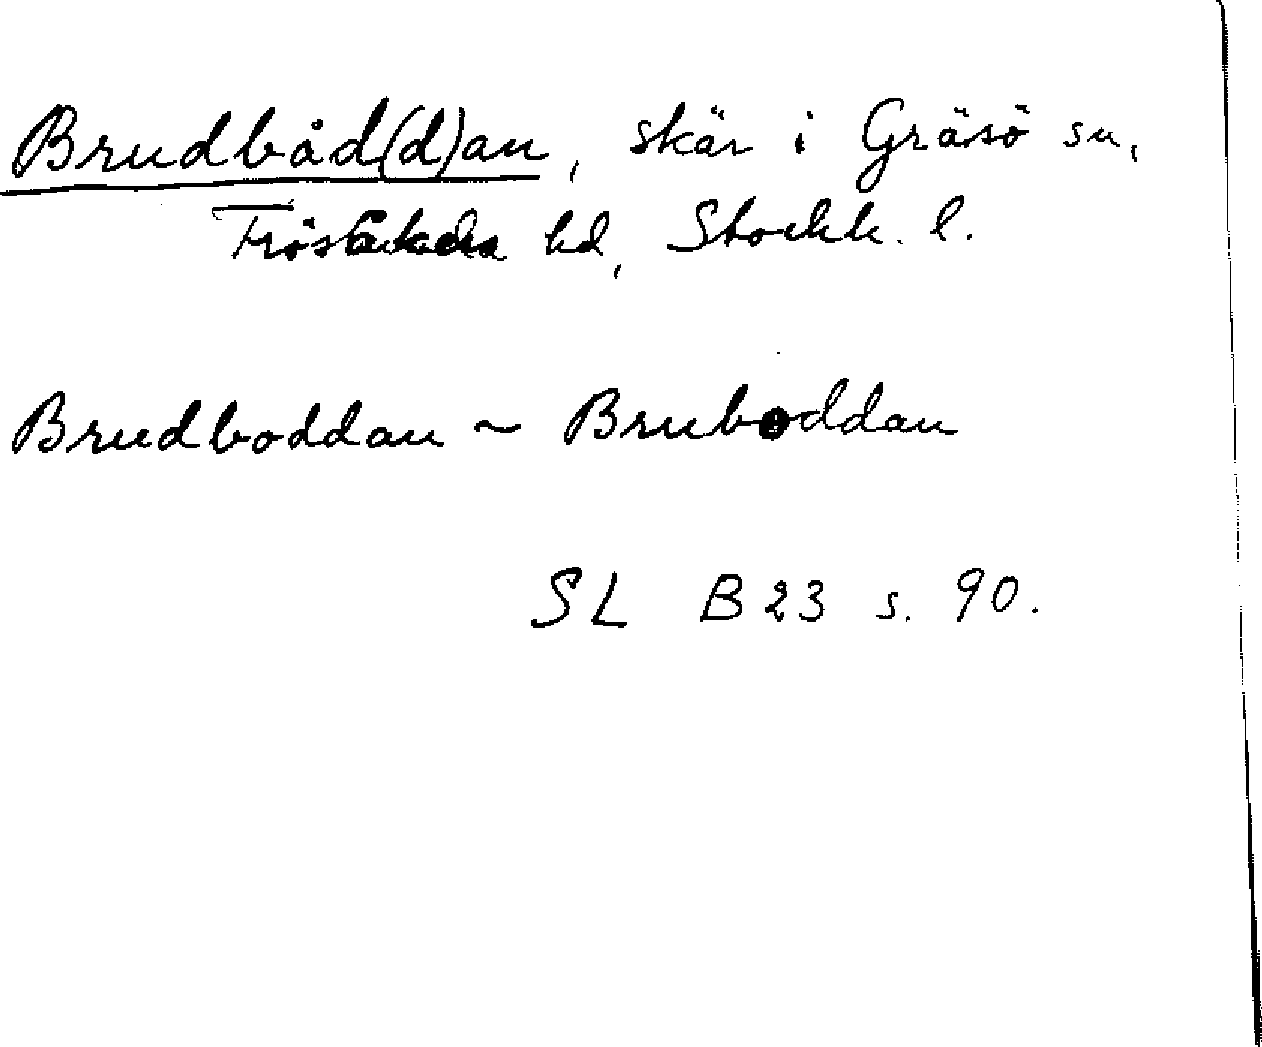 Brudbåd(d)an, skär i Gräsö sn,
Frösåkers hd, Stockh. l.
Brudboddan ~ Bruboddan
SL B23 s. 90.